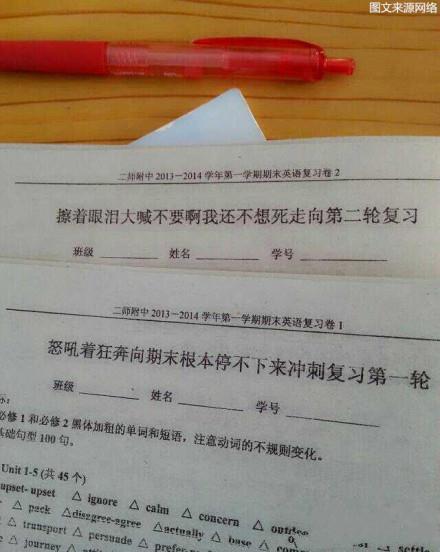 图文来源网络
二师附中 2013—2014 学年第一学期期末英语复习卷 2
擦着眼泪大喊不要啊我还不想死走向第二轮复习
班级 ________ 姓名 ________ 学号 ________
二师附中 2013—2014 学年第一学期期末英语复习卷 1
怒吼着狂奔向期末根本停不下来冲刺复习第一轮
班级 ________ 姓名 ________ 学号 ________
必修 1 和必修 2 黑体加粗的单词和短语，注意动词的不规则变化。
基础句型 100 句。
Unit 1-5 (共 45 个)
upset- upset △ ignore △ calm △ concern △
△ pack △disagree-agree △actually △ base △
△ transport △ persuade △
△ journey △